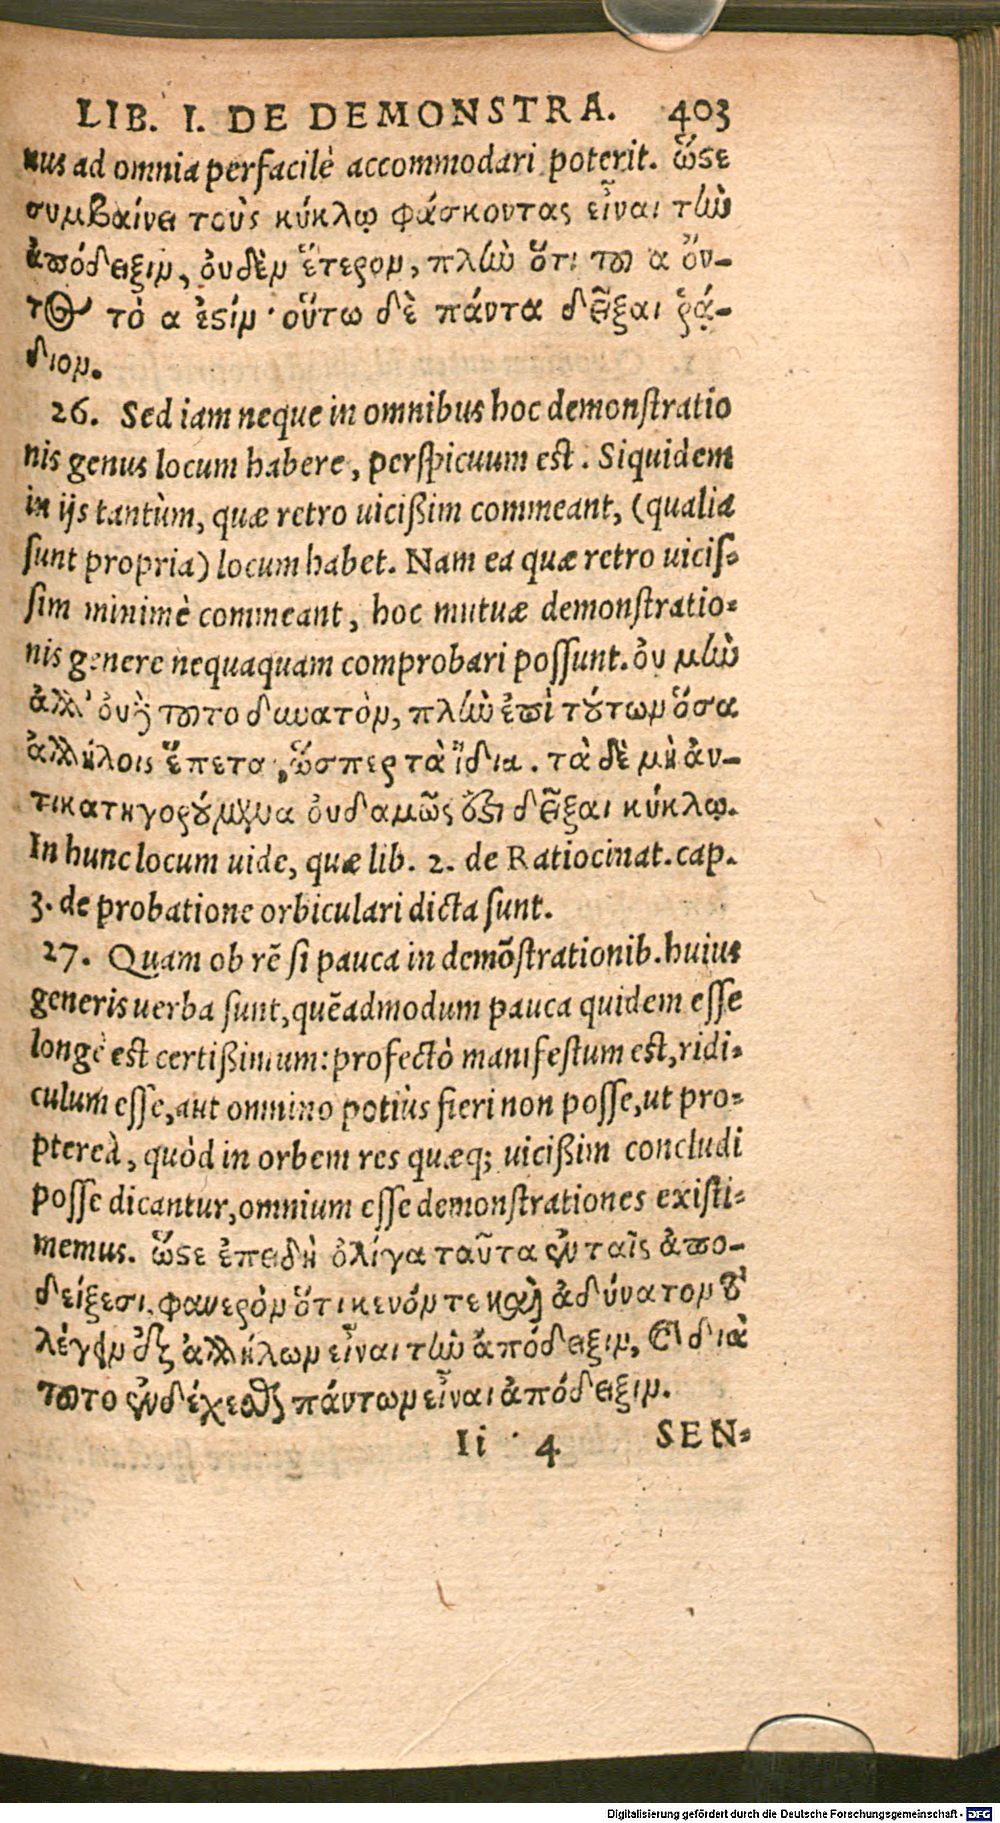 LIB. I. DE DEMONSTRA. 403
nus ad omnia perfacilè accommodari poterit. ὥϛε
συμβαίνει τοὺς κύκλῳ φάσκοντας εἶναι τὴν
ἀπόδειξιν, οὐδὲν ἕτερον, πλὴν ὅτι τοῦ α ὄν-
τος τὸ α ἐϛίν· οὕτω δὲ πάντα δεῖξαι ῥᾴ-
διον.
26. Sed iam neque in omnibus hoc demonstratio
nis genus locum habere, perspicuum est. Siquidem
in ijs tantùm, quæ retro uicißim commeant, (qualia
sunt propria) locum habet. Nam ea quæ retro uicis-
sim minimè commeant, hoc mutuæ demonstratio-
nis genere nequaquam comprobari possunt. οὐ μὴν
ἀλλ' οὐδὲ τοῦτο δυνατὸν, πλὴν ἐπὶ τούτων ὅσα
ἀλλήλοις ἕπεται, ὥσπερ τὰ ἴδια. τὰ δὲ μὴ ἀν-
τικατηγορούμενα οὐδαμῶς ἔϛι δεῖξαι κύκλῳ.
In hunc locum uide, quæ lib. 2. de Ratiocinat. cap.
3. de probatione orbiculari dicta sunt.
27. Quam ob rē si pauca in demōstrationib. huius
generis uerba sunt, quēadmodum pauca quidem esse
longè est certißimum: profectò manifestum est, ridi-
culum esse, aut omnino potiùs fieri non posse, ut pro-
ptereà, quòd in orbem res quæq; uicißim concludi
posse dicantur, omnium esse demonstrationes existi-
memus. ὥϛε ἐπειδὴ ὀλίγα ταῦτα ἐν ταῖς ἀπο-
δείξεσι, φανερὸν ὅτι κενόν τε καὶ ἀδύνατον τὸ
λέγειν ἐξ ἀλλήλων εἶναι τὴν ἀπόδειξιν, καὶ διὰ
τοῦτο ἐνδέχεσθαι πάντων εἶναι ἀπόδειξιν.
Ii 4 SEN-
Digitalisierung gefördert durch die Deutsche Forschungsgemeinschaft - DFG